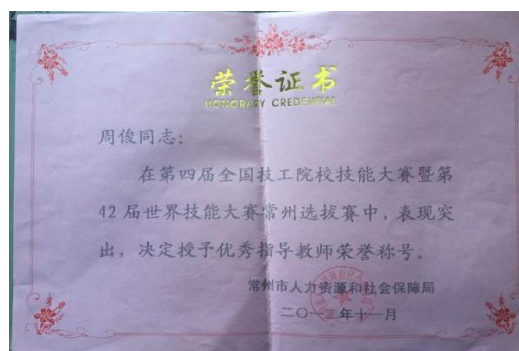 荣誉证书
HONORARY CREDENTIAL
周俊同志:
在第四届全国技工院校技能大赛暨第
42届世界技能大赛常州选拔赛中,表现突
出,决定授予优秀指导教师荣誉称号。
常州市人力资源和社会保障局
二〇一二年十一月